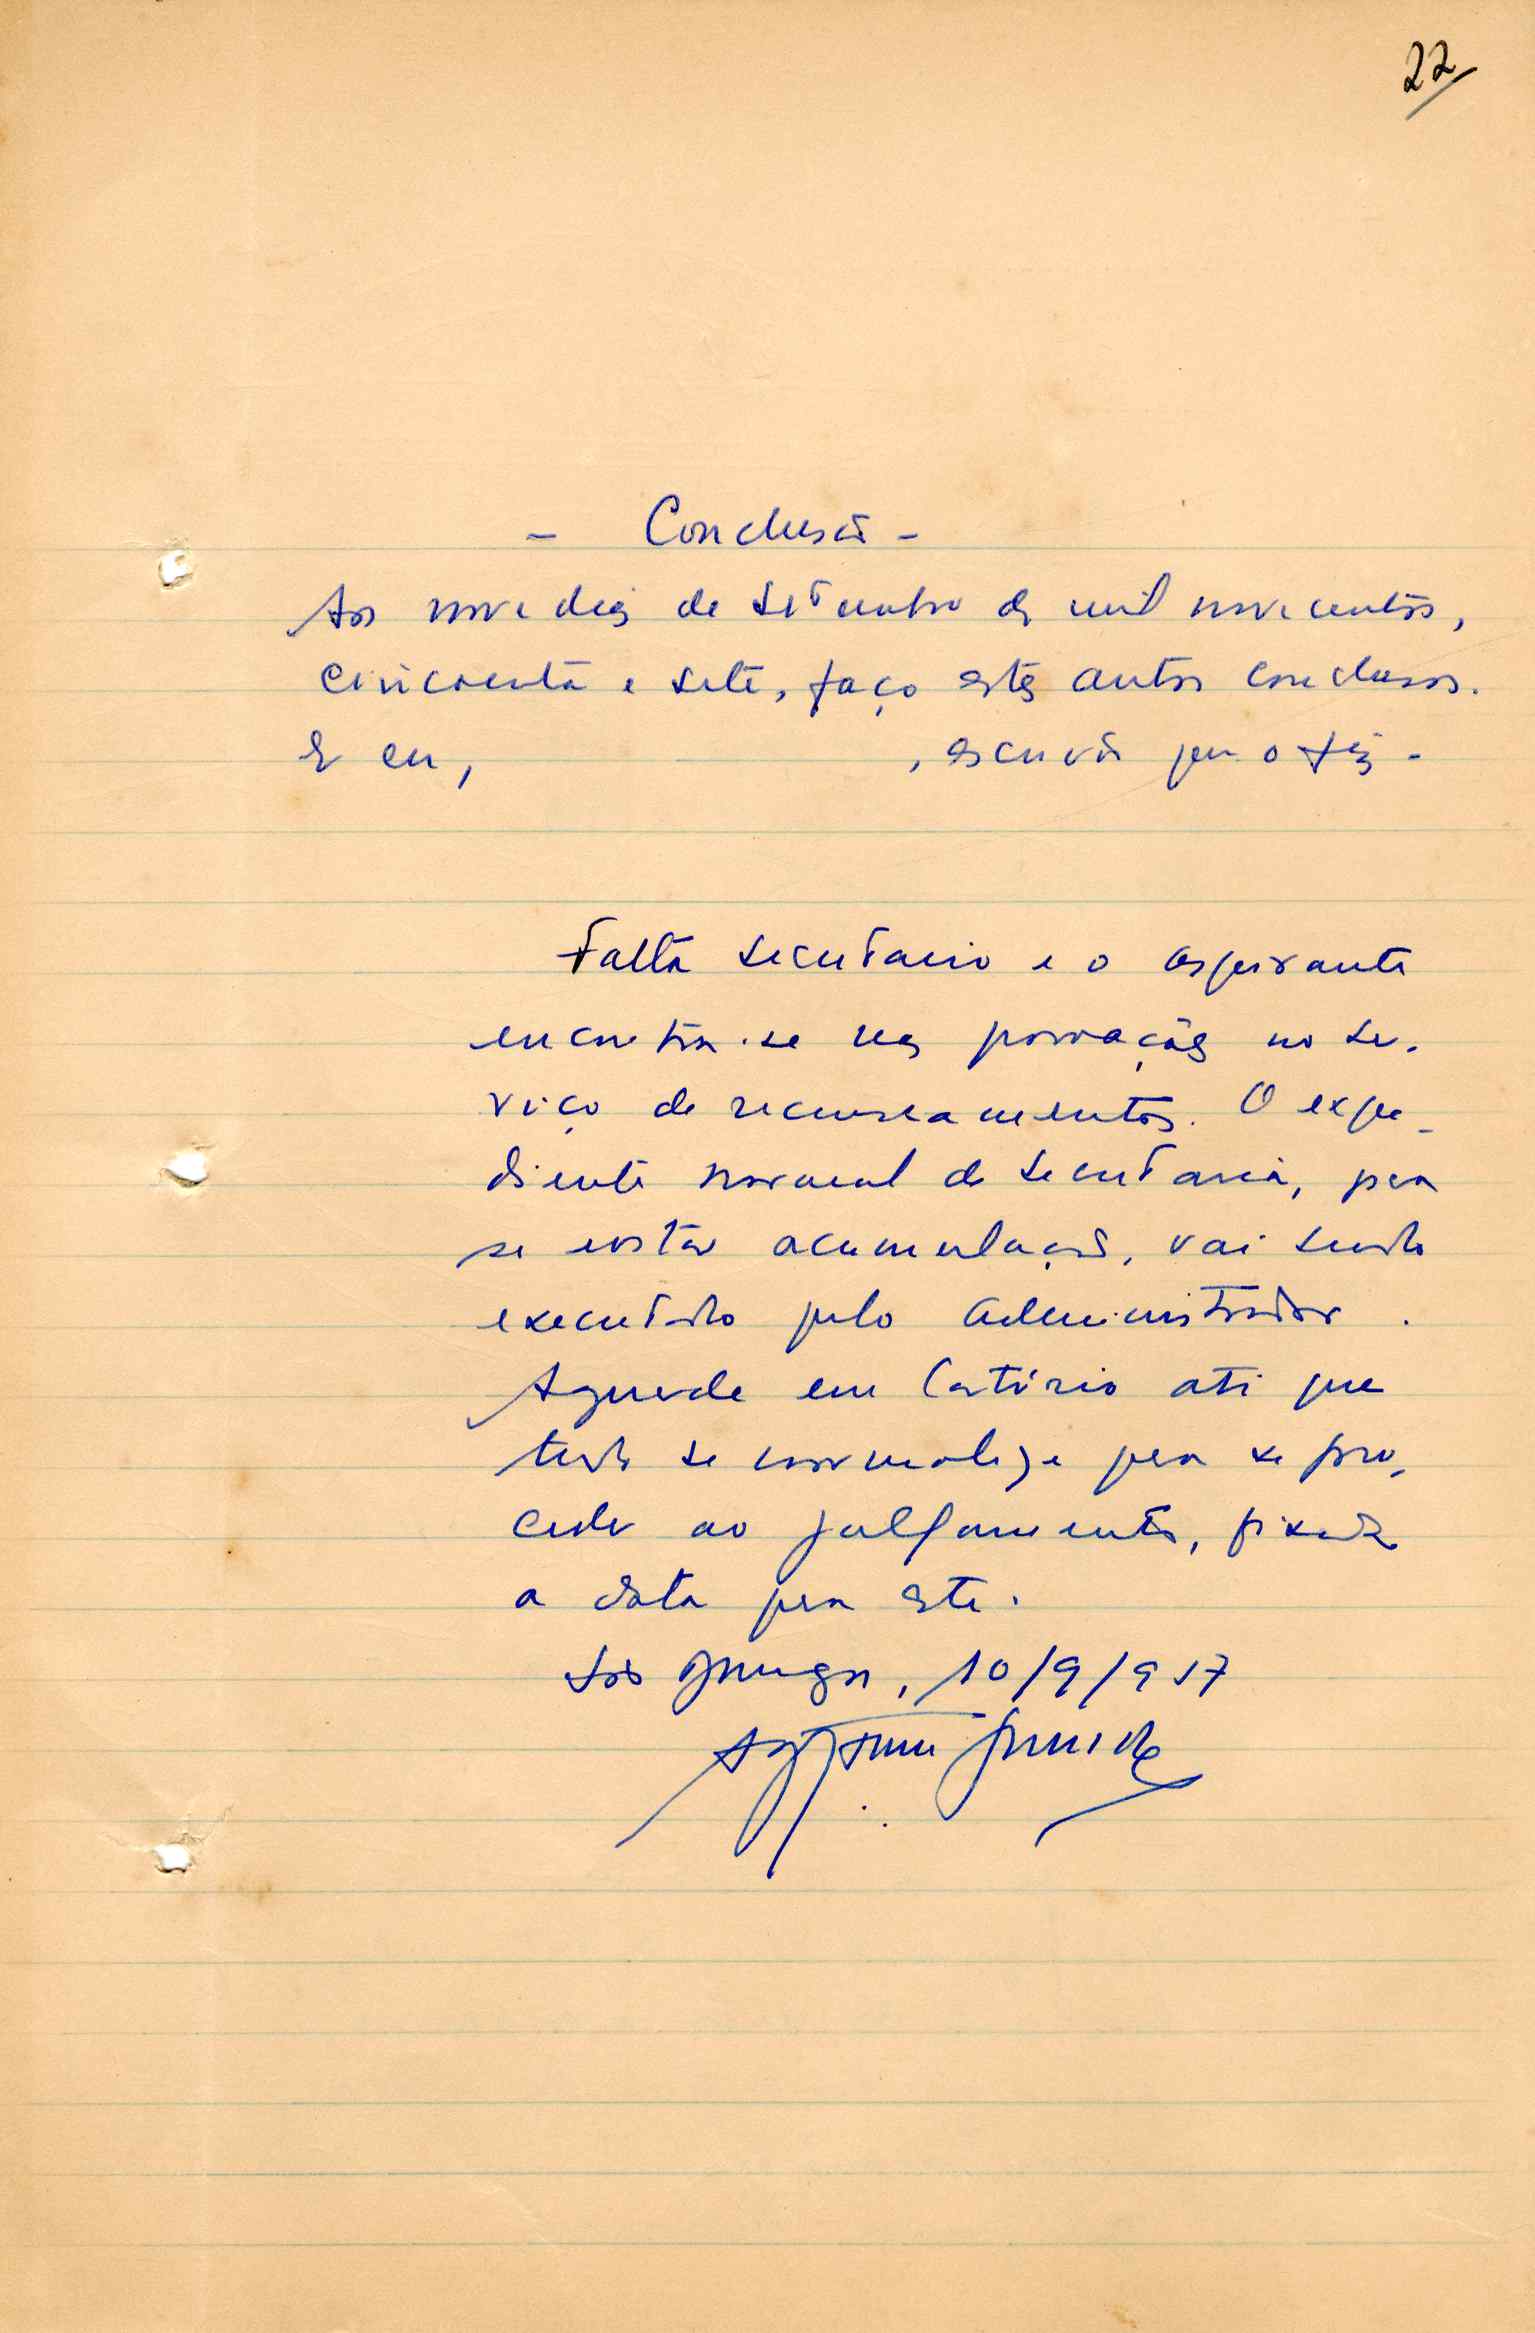 22
- Conclusão -
Aos nove dias de Setembro de mil novecentos,
cincoenta e sete, faço estes autos conclusos.
E eu, , escrivão que o fiz -
Falta secretario e o aspirante
encontra-se nas povoações no ser-
viço de recenseamentos. O expe-
diente normal da secretaria, para
se evitar acumulação, vai sendo
executado pelo administrador.
Aguarde em Cartório até que
tudo se normalize para se pro-
ceder ao julgamento, fixada
a data para este.
10/9/957